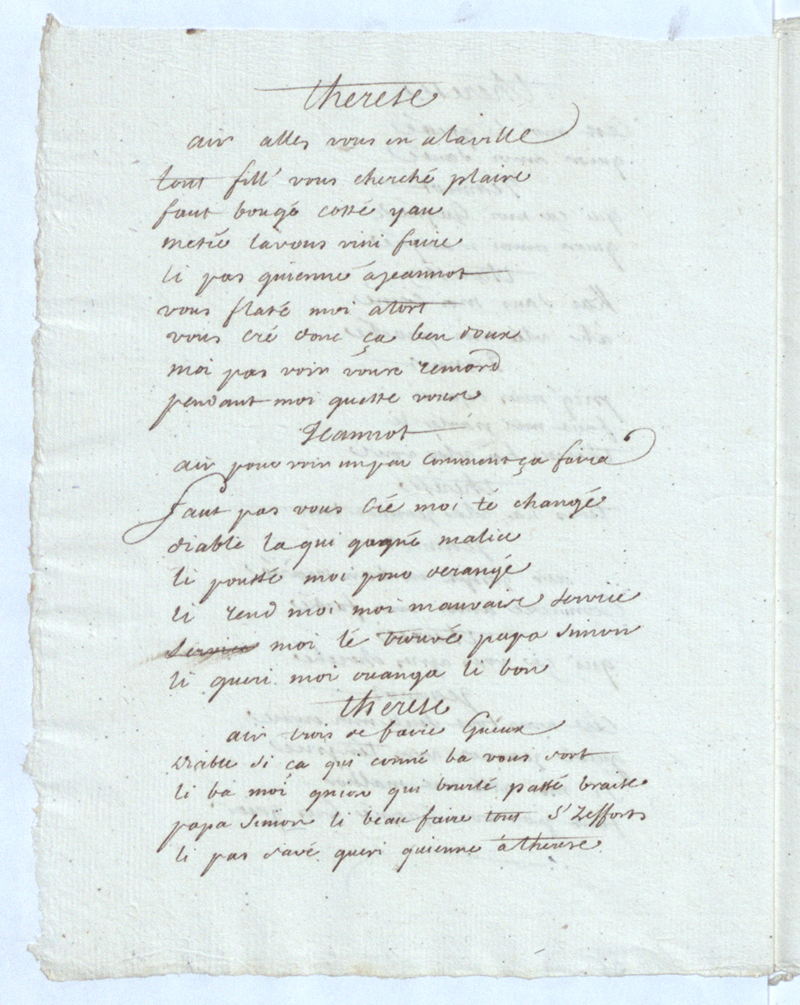 therese
air alles vous en alaville
tout fill' vous cherché plaire
faut bougé cotté yau
metié lavous vini faire
li pas quienne a jeannot
vous flaté moi atort
vous cré donc ça ben doux
moi pas voir voure remord
pendant moi quitté voure
Jeannot
air pour voir un peu comment ça faira
faut pas vous crié moi te changé
diable la qui gagné malice
li poussé moi pour derangé
li rend moi moi mauvaise service
moi té trouvé papa simon
li queri moi ouanga li bon
therese
air trois de faire Gueux
diable di ça qui conné ba vous sort
li ba moi quior qui brulé passé braise
papa simon li beau faire tout s' Zefforts
li pas savé queri quienne à therese